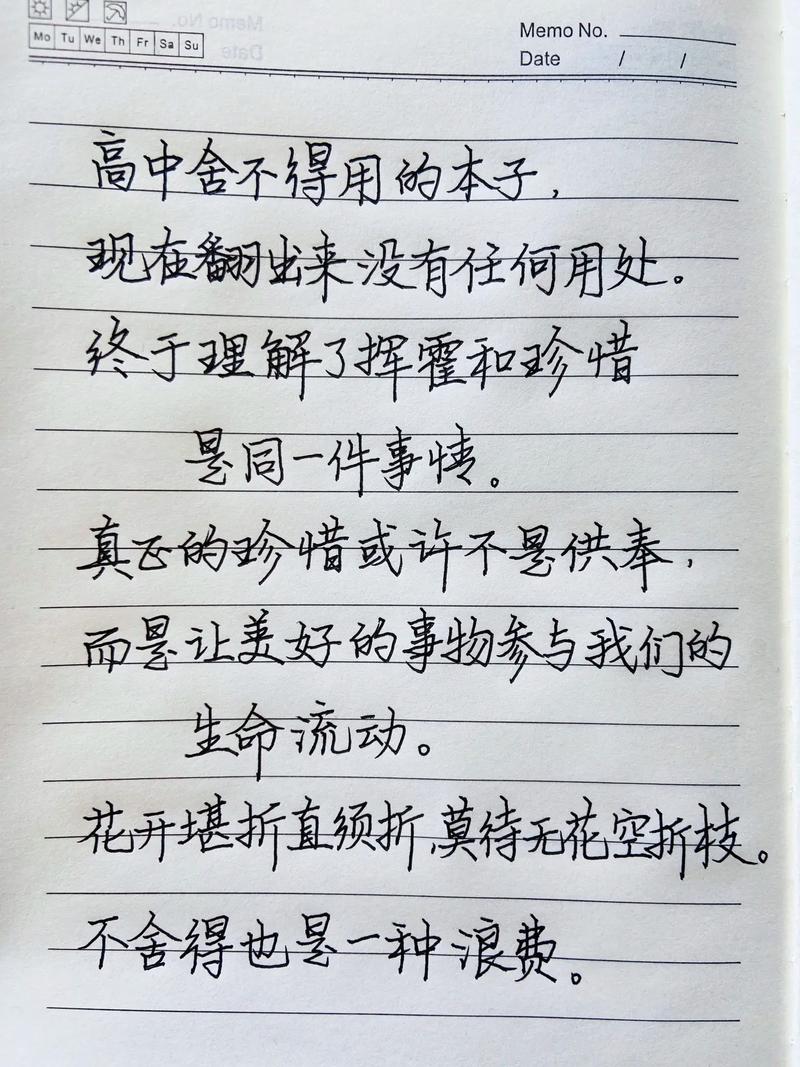 Mo Tu We Th Fr Sa Su
Memo No.
Date / /
高中舍不得用的本子，
现在翻出来没有任何用处。
终于理解了挥霍和珍惜
是同一件事情。
真正的珍惜或许不是供奉，
而是让美好的事物参与我们的
生命流动。
花开堪折直须折，莫待无花空折枝。
不舍得也是一种浪费。